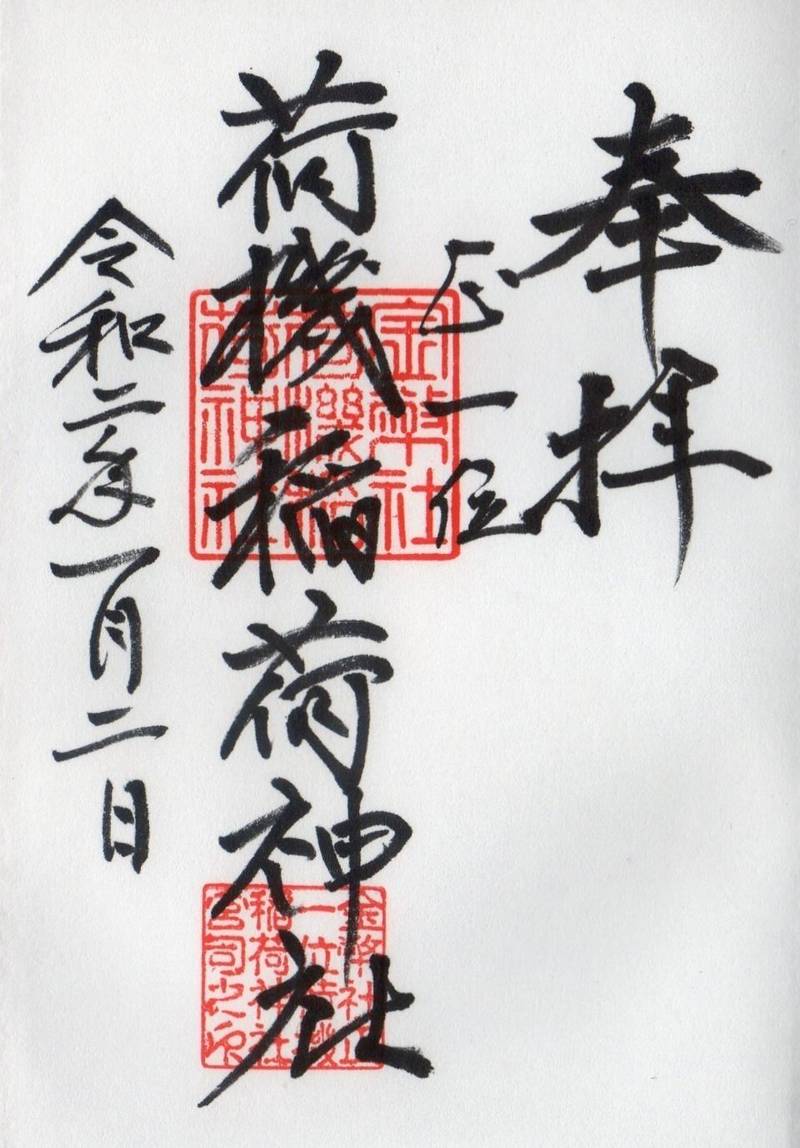 奉拝
正一位
荷機稲荷神社
令和二年一月二日
金幣社
荷機稲
荷神社
金幣社正
一位荷機
稲荷神社
宮司之印